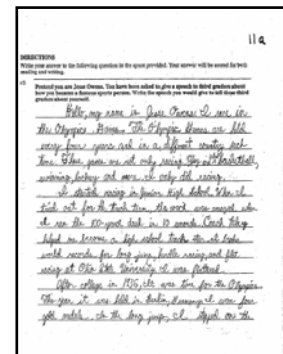 11a
DIRECTIONS
Write your answer to the following question in the space provided. Your answer will be scored for both
reading and writing.
Pretend you are Jesse Owens. You have been asked to give a speech to third graders about
how you became a famous sports person. Write the speech you would give to tell these third
graders about yourself.
Hello, my name is Jesse Owens. I was in
the Olympics Games. The Olympics Games are held
every four years and in a different country each
time. These games are not only racing. They are basketball,
swimming, hockey and more. I only did racing.
I started racing in Junior High School. When I
tried out for the track team, the coach was amazed when
I ran the 100-yard dash in 10 seconds. Coach Riley
helped me become a high school track star. I broke
world records for long jump, hurdle racing, and flat
racing at Ohio State University. I was flattered.
After college in 1936, it was time for the Olympics.
The year it was held in Berlin, Germany. I won four
gold medals. In the long jump, I stepped on the